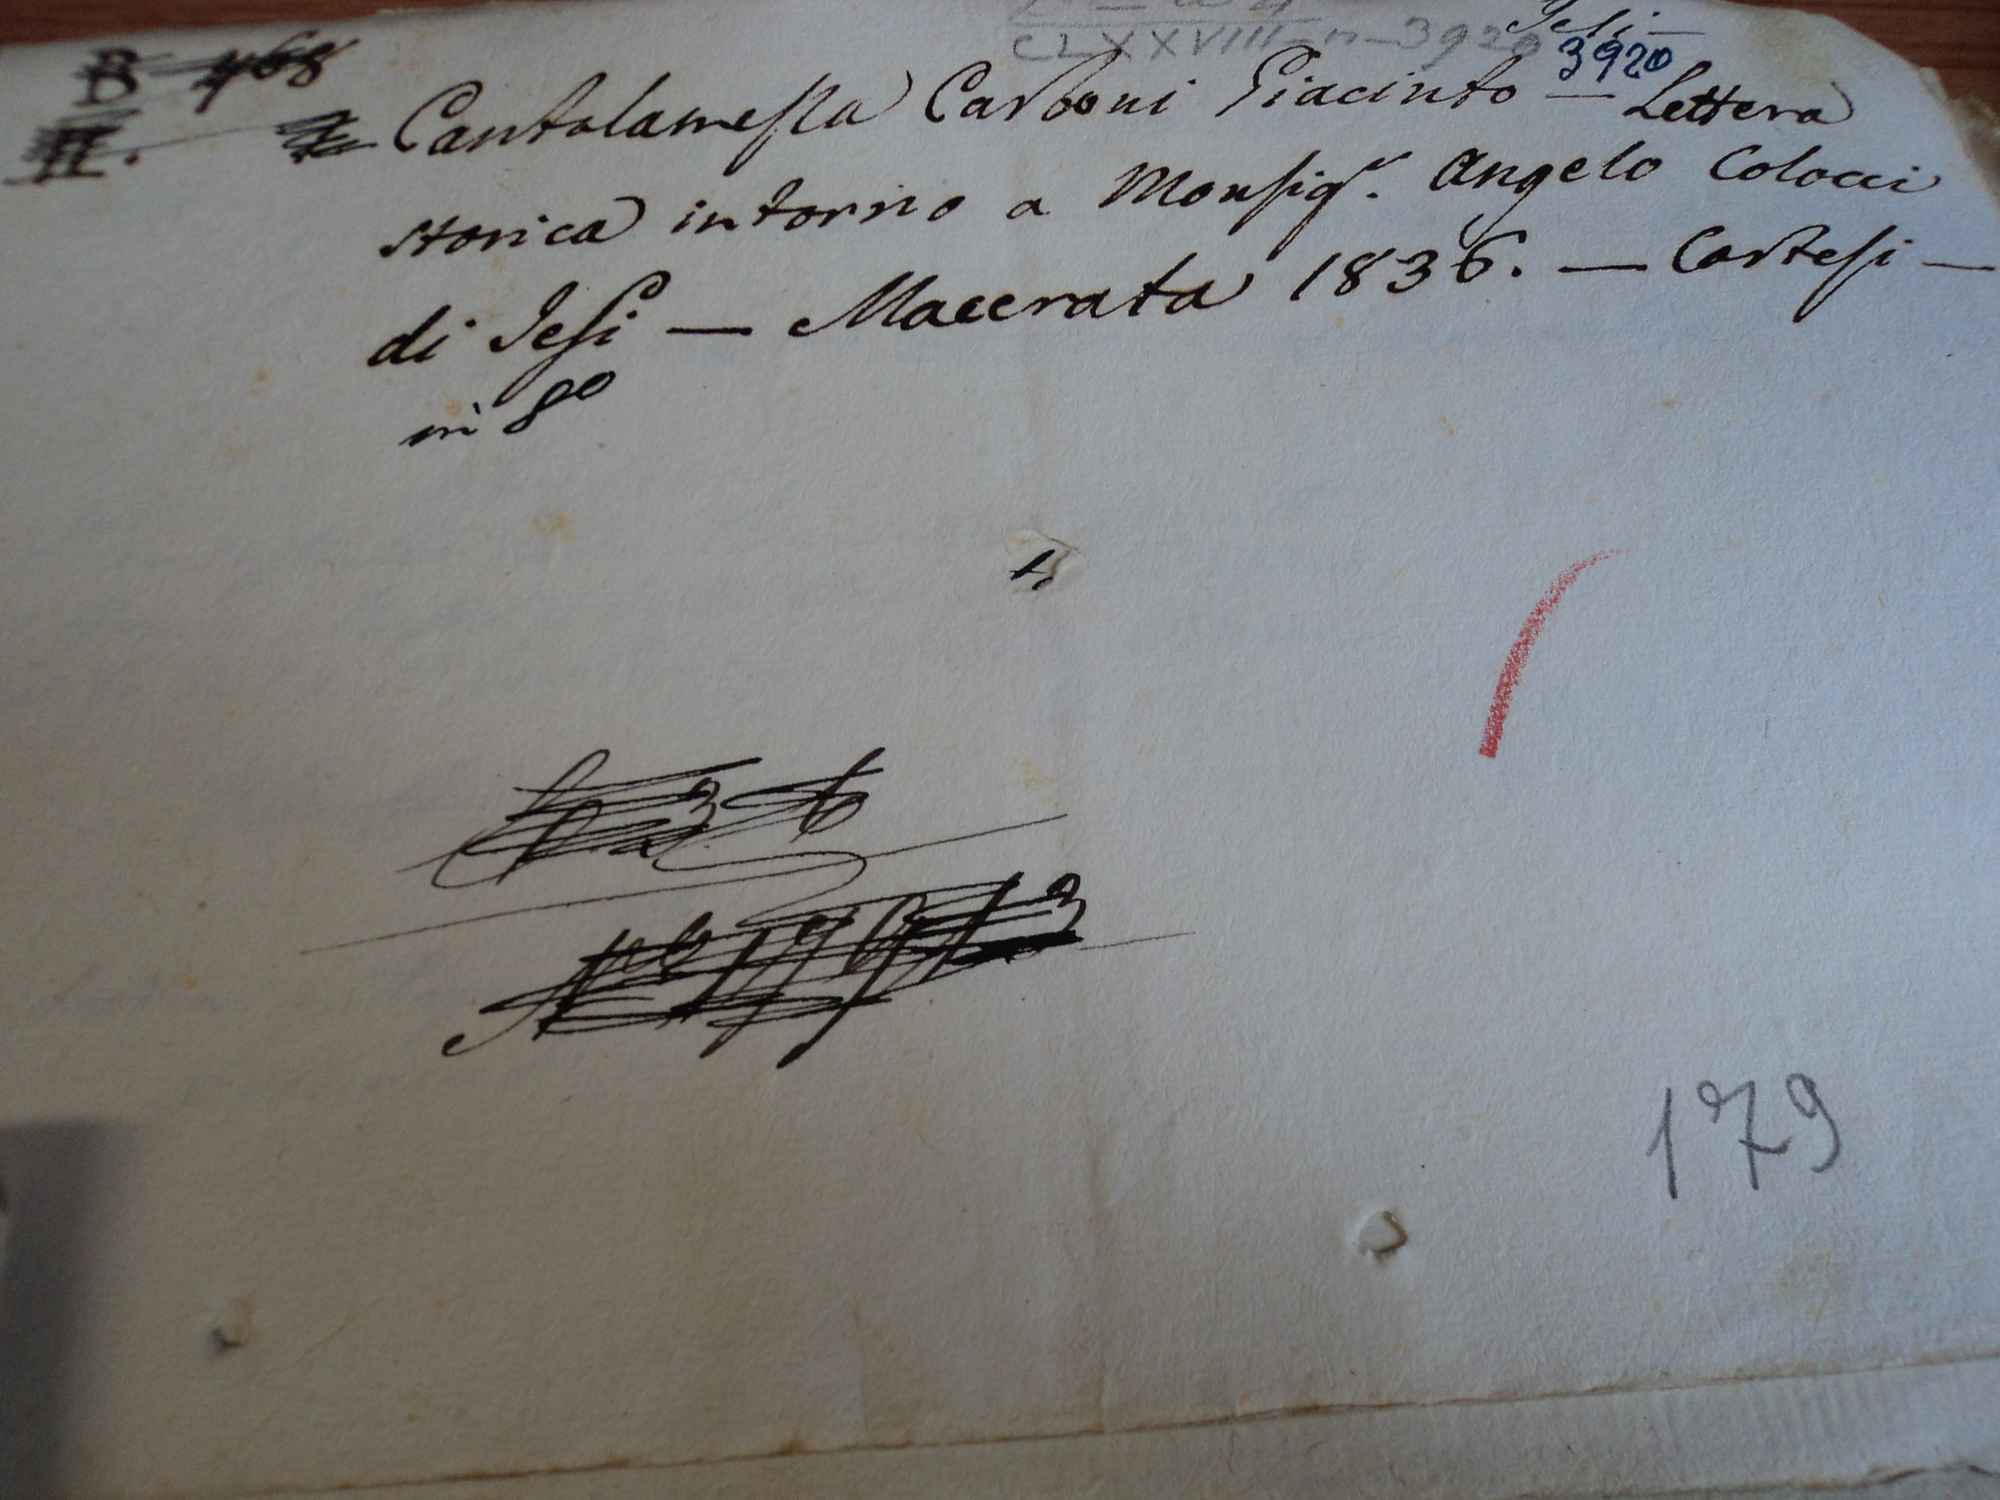 Jesi —
CLXXVIII - n - 3920
3920
B 468
II.
Cantalamessa Carboni Giacinto — Lettera
storica intorno a Monsigr. Angelo Colocci
di Jesi — Macerata 1836. — Cortesi —
in 8o
179